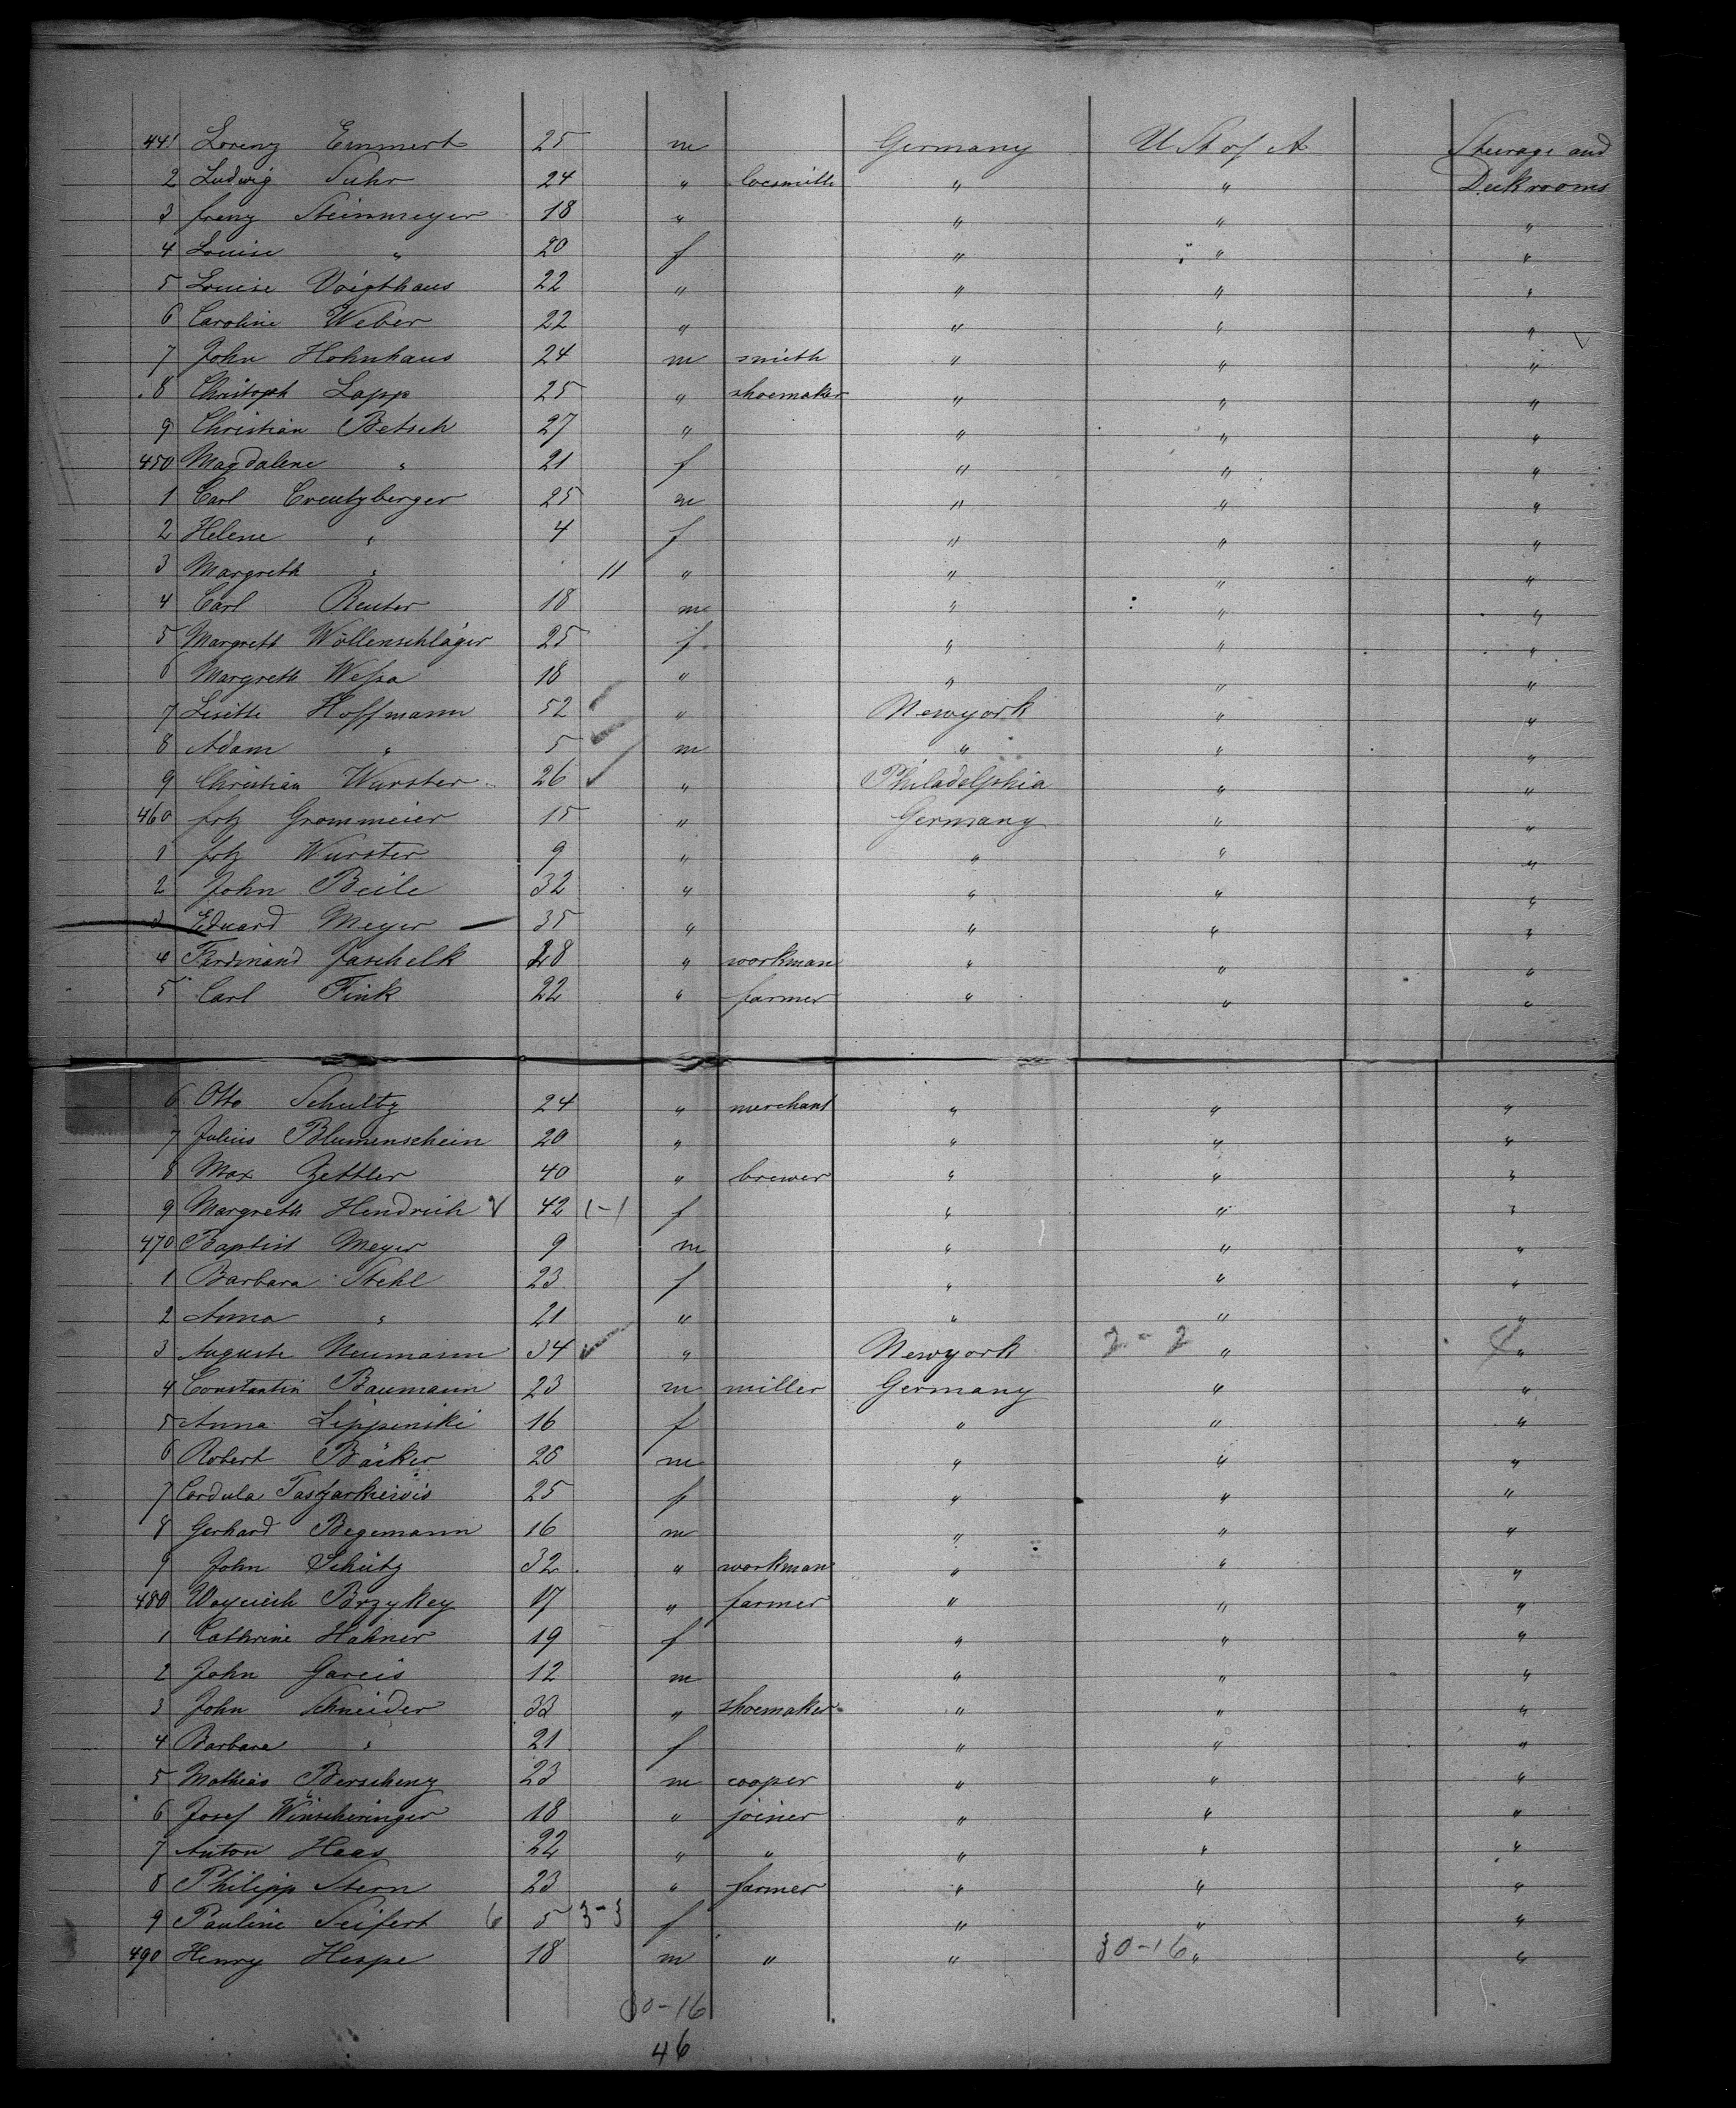 441 Lorenz Emmert 25 m Germany U St of A Steerage and
2 Ludwig Suhr 24 " locsmith " " Deckrooms
3 franz Steinmeyer 18 " " " "
4 Louise " 20 f " " "
5 Louise Voigthaus 22 " " " "
6 Caroline Weber 22 " " " "
7 John Hohnhaus 24 m smith " " "
8 Christoph Lapp 25 " shoemaker " " "
9 Christian Betsch 27 " " " "
450 Magdalene " 21 f " " "
1 Carl Creutzberger 25 m " " "
2 Helene " 4 f " " "
3 Margreth " 11 " " " "
4 Carl Reuter 18 m " " "
5 Margreth Wöllenschläger 25 f " " "
6 Margreth Weßa 18 " " " "
7 Lisette Hoffmann 52 " Newyork " "
8 Adam " 5 m " " "
9 Christian Wurster 26 " Philadelphia " "
460 frtz Grommeier 15 " Germany " "
1 frtz Wurster 9 " " " "
2 John Beile 32 " " " "
3 Eduard Meyer 35 " " " "
4 Ferdinand Jaschelk 28 " workman " " "
5 Carl Fink 22 " farmer " " "
6 Otto Schultz 24 " merchant " " "
7 Julius Blumenschein 20 " " " "
8 Max Zettler 40 " brewer " " "
9 Margreth Hendrich 42 1-1 f " " "
470 Baptist Meyer 9 m " " "
1 Barbara Stehl 23 f " " "
2 Anna " 21 " " " "
3 Auguste Neumann 34 " Newyork 2-2 " "
4 Constantin Baumann 23 m miller Germany " "
5 Anna Lippinski 16 f " " "
6 Robert Bäcker 26 m " " "
7 Cordula 25 f " " "
8 Gerhard Begemann 16 m " " "
9 John Schütz 32 " workman " " "
480 Woyciech Brzykey 17 " farmer " " "
1 Cathrine Hahner 19 f " " "
2 John Gareis 12 m " " "
3 John Schneider 33 " shoemaker " " "
4 Barbara " 21 f " " "
5 Mathias Berscheny 23 m cooper " " "
6 Josef Winscheringer 18 " joiner " " "
7 Anton Haas 22 " " " " "
8 Philipp Stern 23 " farmer " " "
9 Pauline Seifert 6 5 3-3 f " " "
490 Henry Hespe 18 m " " 30-16 " "
30-16
46